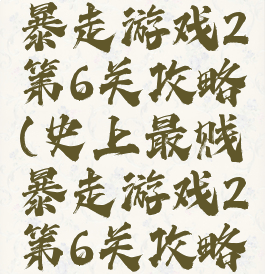 暴走游戏2
第6关攻略
(史上最贱
暴走游戏2
第6关攻略